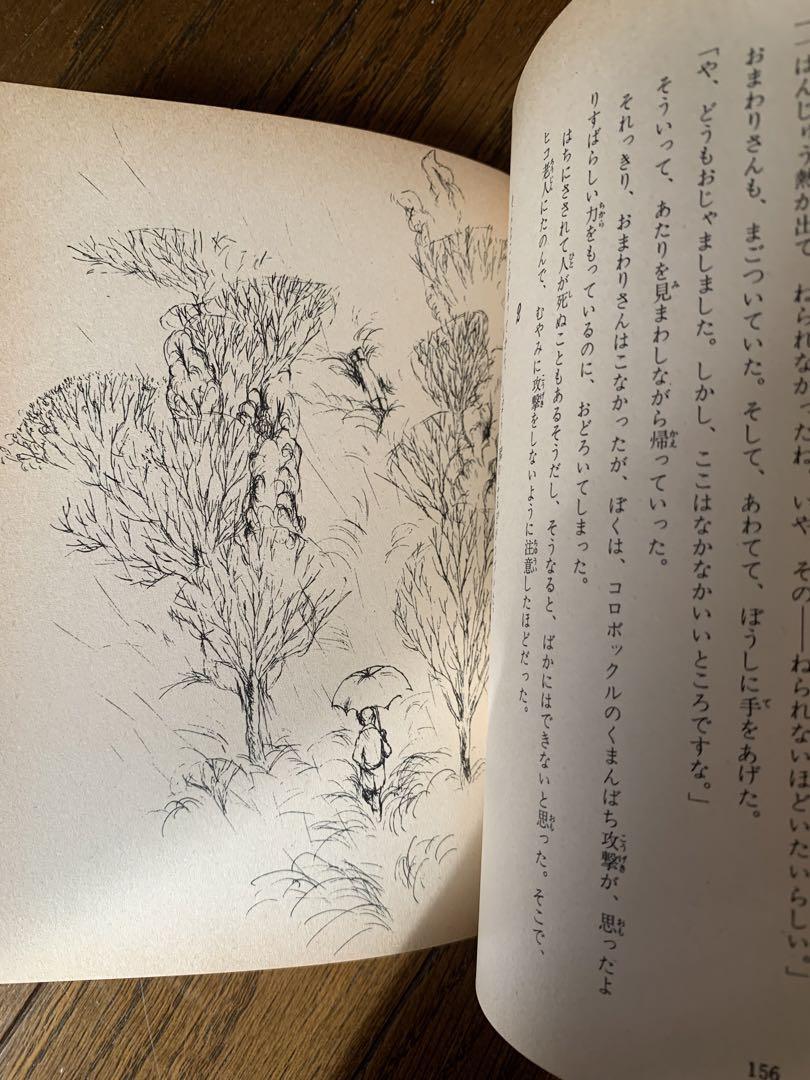 一ばんじゅう熱が出て、ねられなかったね。いや、その――ねられないほどいたいらしい。」
おまわりさんも、まごついていた。そして、あわてて、ぼうしに手をあげた。
「や、どうもおじゃましました。しかし、ここはなかなかいいところですな。」
そういって、あたりを見まわしながら帰っていった。
それっきり、おまわりさんはこなかったが、ぼくは、コロボックルのくまんばち攻撃が、思ったよ
りすばらしい力をもっているのに、おどろいてしまった。
はちにさされて人が死ぬこともあるそうだし、そうなると、ばかにはできないと思った。そこで、
ヒコ老人にたのんで、むやみに攻撃をしないように注意したほどだった。
156